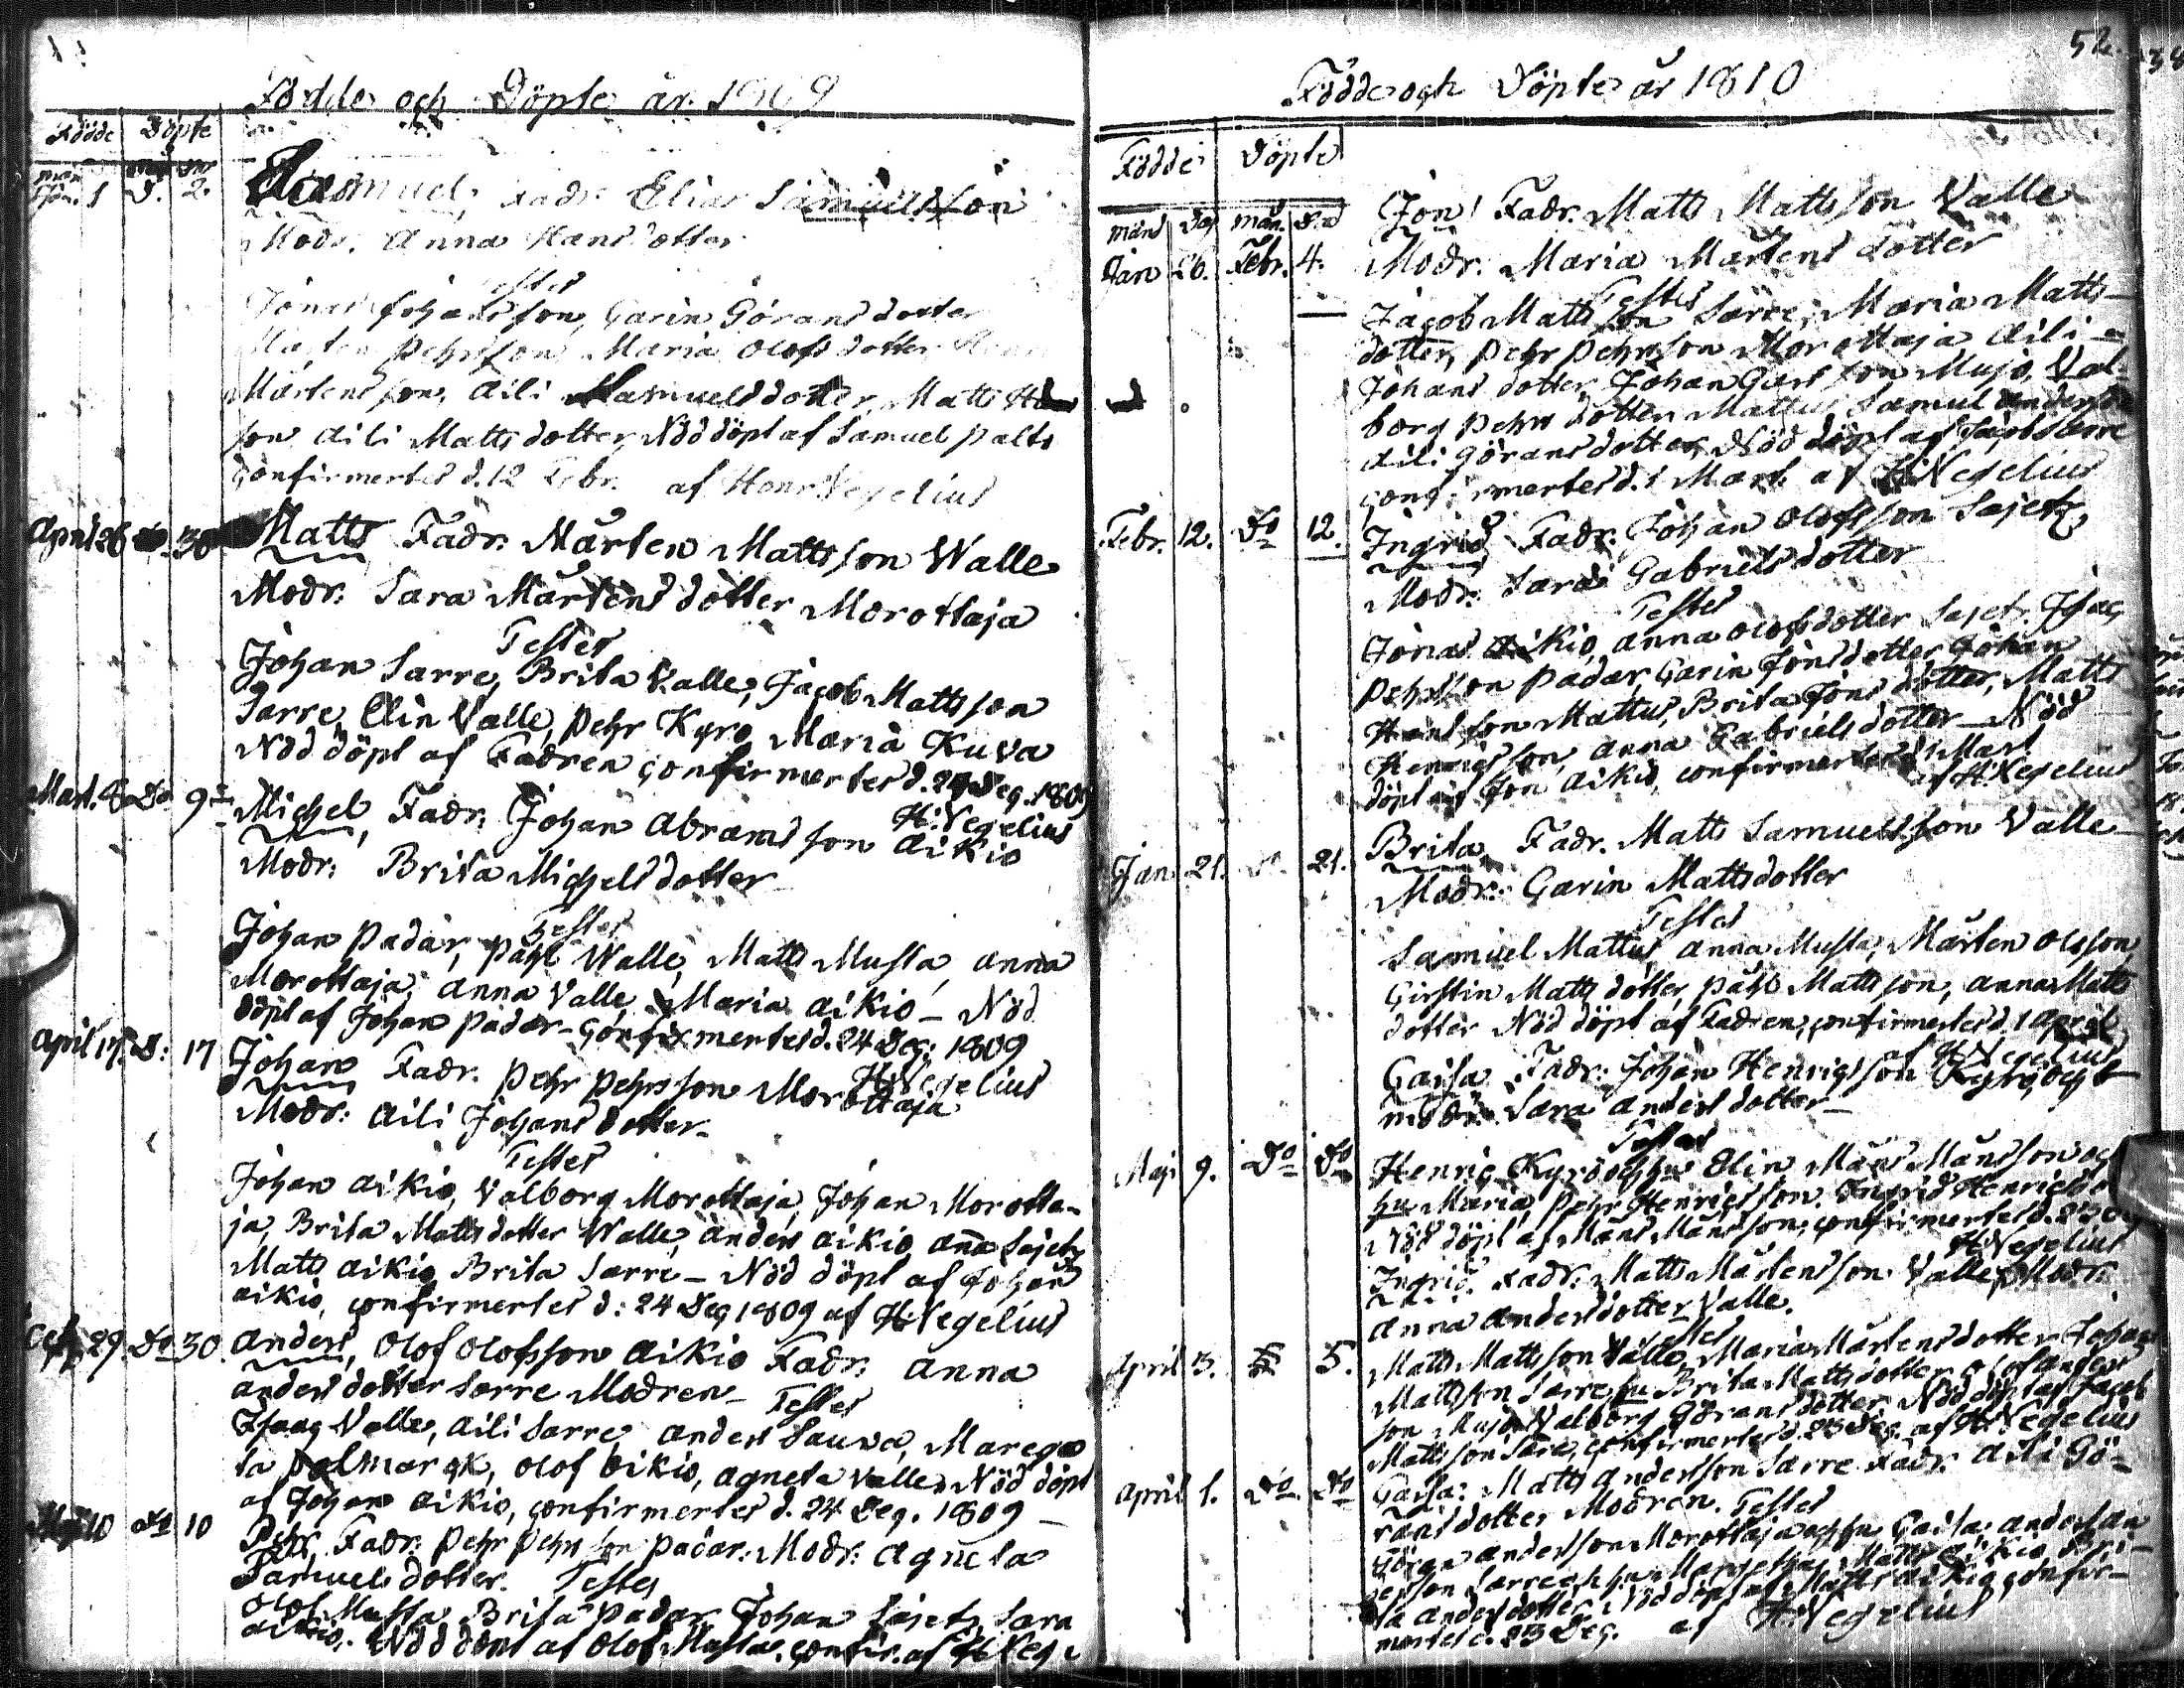 Födde och Döpte år 1809
Födde Döpte
Jan. 1 D. 2. Samuel, Fadr. Elias Samuelsson
Modr. Anna Hans dotter
Testes
Jonas Johansson, Carin Görans dotter
Mårten Pehrsson, Maria Olofs dotter Henr
Mårtensson, Aili Samuels dotter, Matts
son Aili Matts dotter, Nöd döpt af Samuel Palto
Confirmertes d. 12 Febr. af Henr Wegelius
April 26 30 Matts Fadr. Mårten Mattsson Walle
Modr: Sara Mårtens dotter Morottaja
Testes
Johan Sarre, Brita Valle, Jacob Mattsson
Sarre, Elin Valle, Pehr Kyrö Maria Kuva
Nöd döpt af Fadren confirmertes d. 24 Dec. 1809
H. Wegelius
Mart. 8 Do 9 Michel, Fadr. Johan Abrams son Aikio
Modr: Brita Michels dotter
Testes
Johan Padar, Påhl Walle, Matts Musta, Anna
Morottaja, Anna Valle, Maria Aikio - Nöd
döpt af Johan Padar - Confirmertes d. 24 Dec: 1809
H. Wegelius
April 17. D: 17 Johan Fadr. Pehr Pehrsson Morottaja
Modr: Aili Johans dotter
Testes
Johan Aikio, Valborg Morottaja, Johan Morotta-
ja, Brita Matts dotter Walle, Anders Aikio, Anna Sajetz
Matts Aikio, Brita Sarre - Nöd döpt af Johan
Aikio, confirmertes d: 24 Dec 1809 af H Wegelius
29. Do 30. Anders, Olof Olofsson Aikio Fadr: Anna
Anders dotter Sarre Modren - Testes
Isaac Valle, Aili Sarre, Anders Sauva, Marega
ta Palmarck, Olof Aikio, Agneta Valle, Nöd döpt
af Johan Aikio, confirmertes d. 24 Dec. 1809 -
10 Do 10 Pehr, Fadr: Pehr Pehrsson Padar. Modr: Agneta
Samuels dotter. Testes
Olof Musta, Brita Padar, Johan Sajetz, Sara
Aikio. Nöd döpt af Olof Musta, confir. af H Weg
52.
Födde och Döpte år 1810
Födde Döpte
månd Dag mån. Dag
Jan 26. Febr. 4. Jon, Fadr. Matts Mattsson Valle
Modr. Maria Mårtens dotter
Testes
Jacob Mattsson Sarre, Maria Matts-
dotter, Pehr Pehrsson Morottaja Aili
Johans dotter, Johan Carlsson Mujo, Val-
borg Pehrs dotter Mattus, Samul Anders
Aili Görans dotter, Nöd döpt af Jacob Sarre
confirmertes d. 1 Mart. af H Wegelius
Febr. 12. Do 12. Ingrid Fadr. Johan Olofsson Sajetz
Modr: Sara Gabriels dotter
Testes
Jonas Aikio, Anna Olofsdotter Sajetz. Isac
Pehrsson Padar, Carin Jonsdotter Johan
Hansson Mattus, Brita Jons dotter, Matts
Henricsson, Anna Gabriels dotter Nöd
döpt af Jon Aikio, confirmertes d. 1 Mart
af H. Wegelius
Jan 21. 21. Brita, Fadr. Matts Samuelsson Valle
Modr: Carin Mattsdotter
Testes
Samuel Mattus, Anna Musta, Mårten Olsson
Cirstin Matts dotter, Påhl Mattsson, Anna Matts
dotter Nöd döpt af Fadren, confirmertes d. 1 April
af H Wegelius
Caisa Fadr. Johan Henricsson Kyrö, och
modr: Sara Anders dotter
Testes
Maji 9. Do Do Henric Kyrö och hu Elin Måns Månsson och
hu Maria, Pehr Henricsson, Ingrid Henrics
Nöd döpt af Måns Månsson, confirmertes d. 23
H Wegelius
Ingrid. Fadr: Matts Mårtensson Valle, Modr.
Anna Andersdotter Valle.
Testes
April 3. 5. Matts Mattsson Valle, Maria Mårtensdotter Johan
Mattsson Sarre, hu Brita Mattsdotter, Olof Anders
son Mujo, Valborg Görans dotter, Nöd döpt af Jacob
Mattsson Sarre, confirmertes d. 23 Dec. af H Wegelius
April 1. Do Do Caisa: Matts Andersson Sarre Fadr: Aili Gö-
rans dotter Modren. Testes
Göran Andersson Morottaja och hu Caisa, Anders An
dersson Sarre och hu Margetha, Matts Aikio
ta Anders dotter, Nöd döpt af Matts Aikio confir-
mertes d. 23 Dec. af H. Wegelius